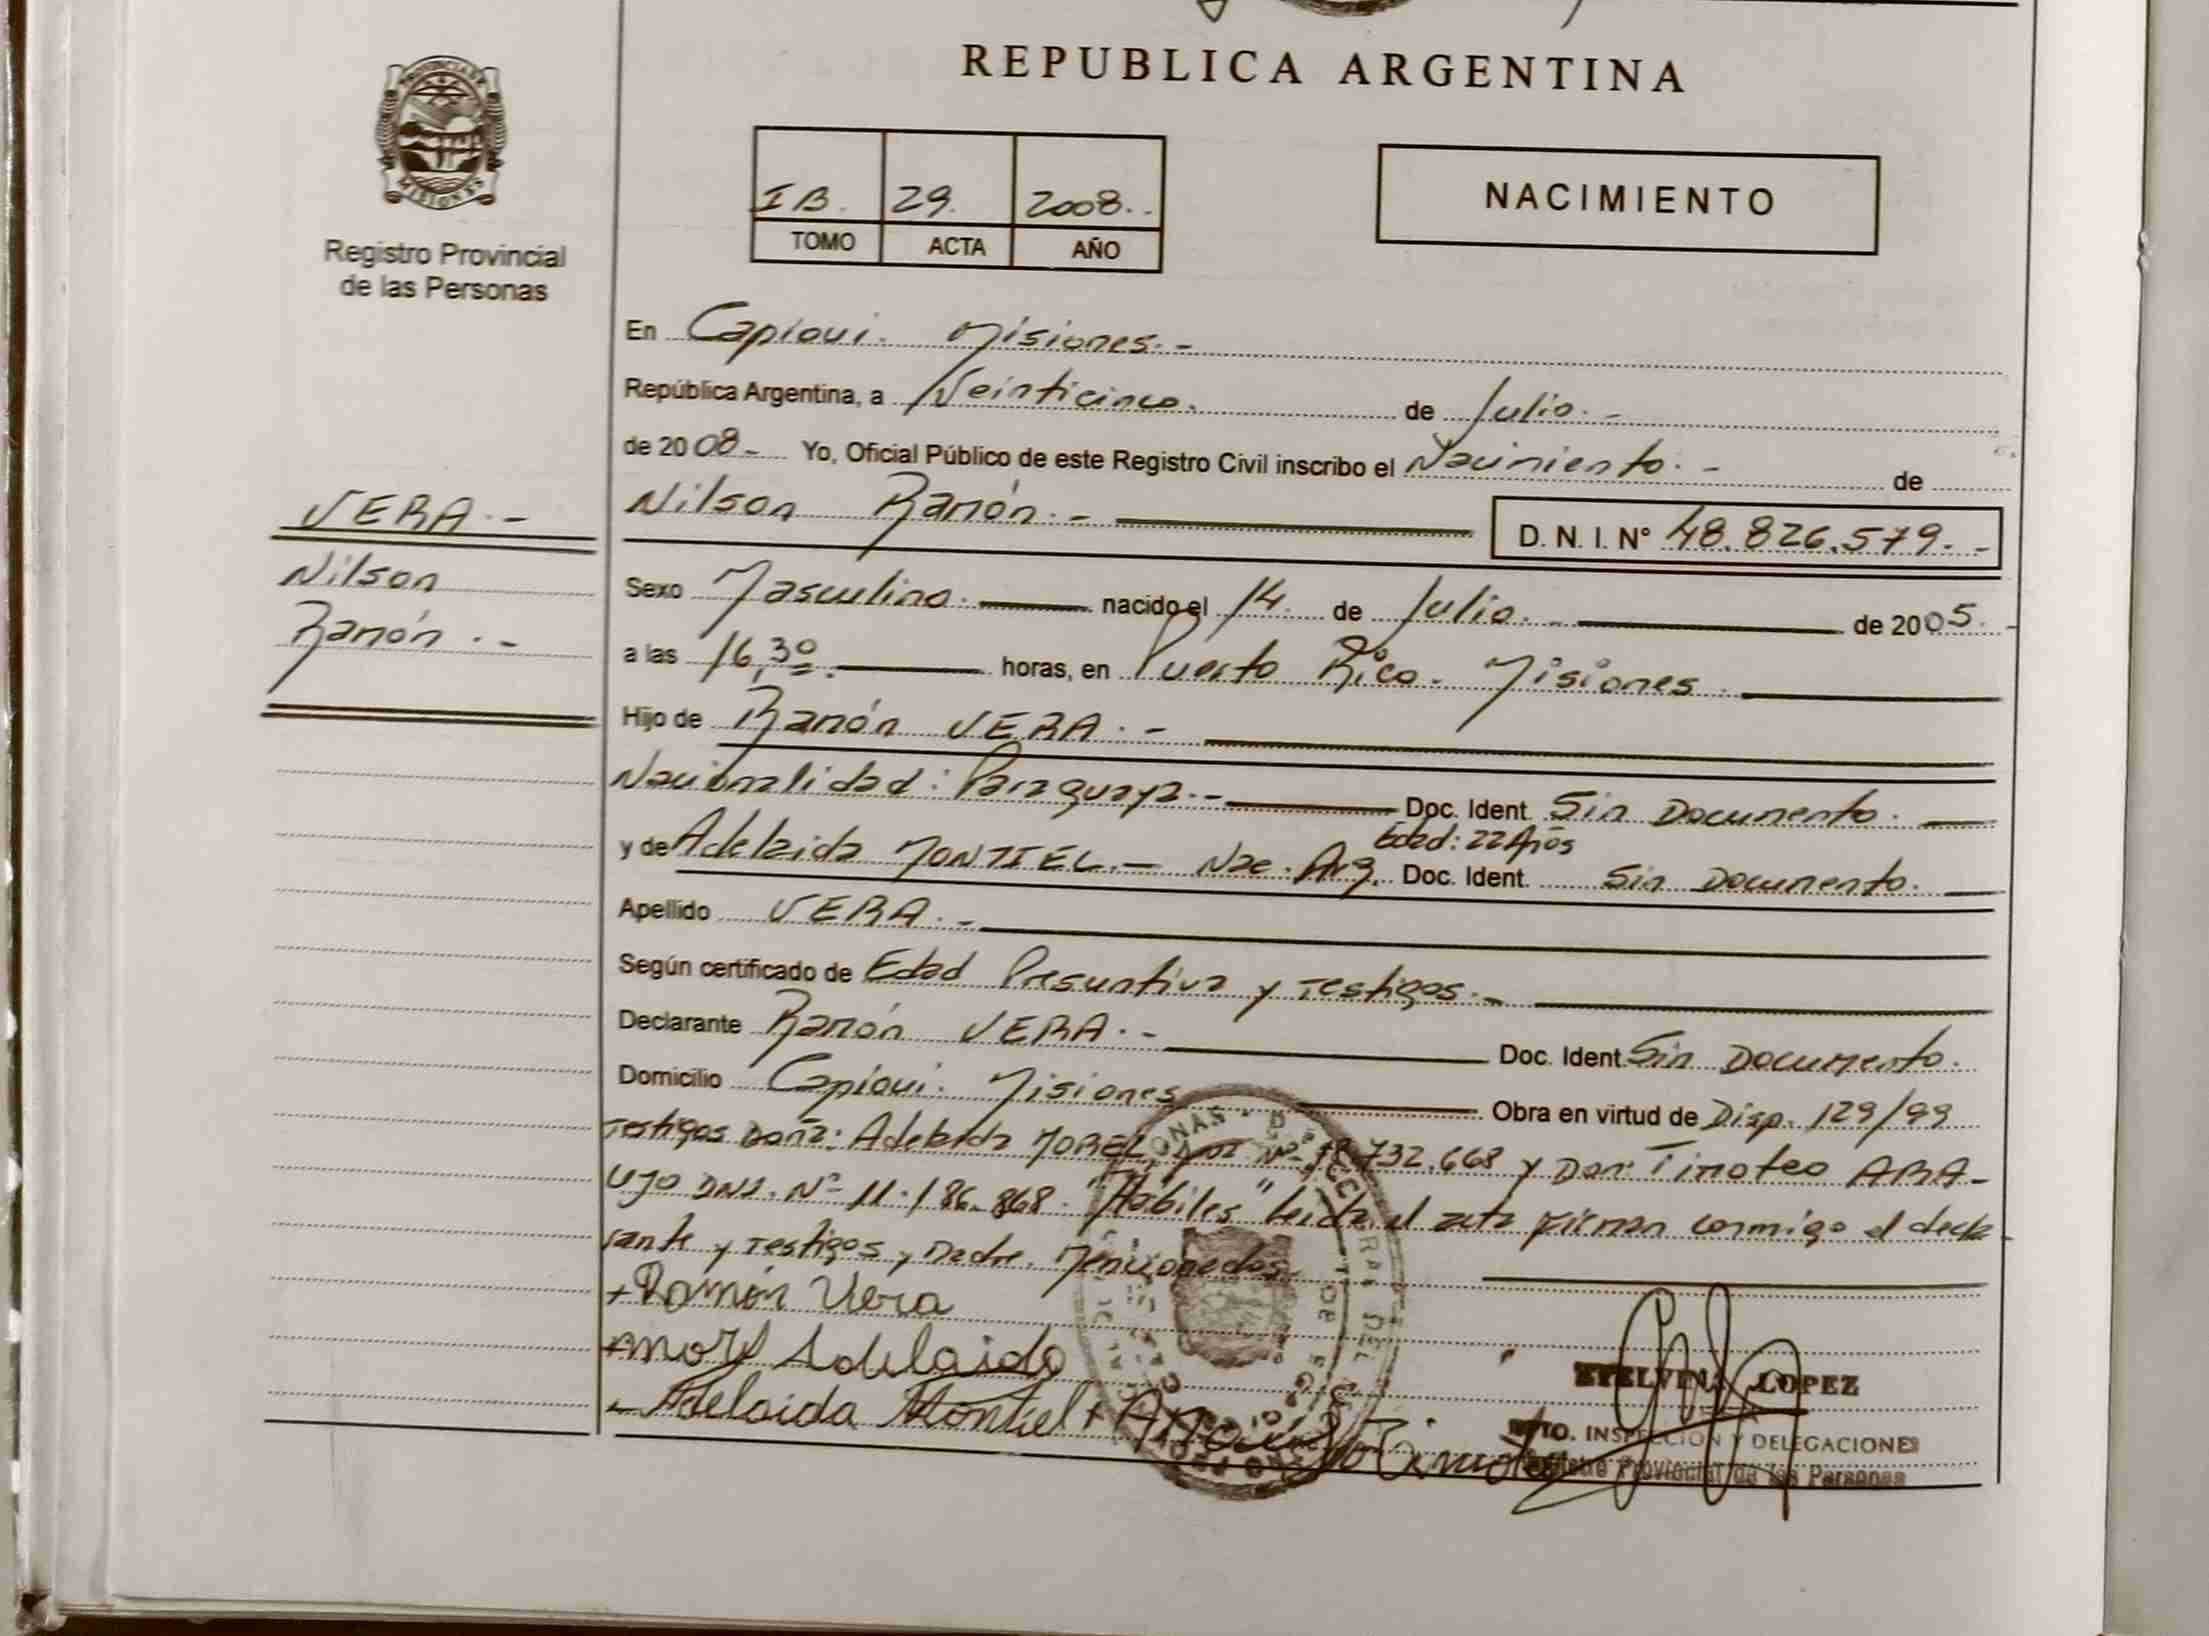 REPUBLICA ARGENTINA
PROVINCIA DE
MISIONES
Registro Provincial
de las Personas
IB. 29. 2008.-
TOMO ACTA AÑO
NACIMIENTO
En Capiovi. Misiones.-
República Argentina, a Veinticinco. de Julio.-
de 2008- Yo, Oficial Público de este Registro Civil inscribo el Nacimiento.- de
Nilson Ramón.- D. N. I. Nº 48.826.579.-
VERA.-
Nilson
Ramón.-
Sexo Masculino. nacido el 14. de Julio.- de 2005.-
a las 16,30. horas, en Puerto Rico. Misiones.
Hijo de Ramón VERA.-
Nacionalidad: Paraguaya.- Doc. Ident. Sin Documento.
Edad: 22 Años
y de Adelaida MONTIEL.- Nac. Arg. Doc. Ident. Sin Documento.
Apellido VERA.-
Según certificado de Edad Presuntiva y Testigos.-
Declarante Ramón VERA.- Doc. Ident. Sin Documento.
Domicilio Capiovi. Misiones Obra en virtud de Disp. 129/99
Testigos Doña: Adelaida MOREL, Nº 732.668 y Don: Timoteo ARA-
UJO DNI. Nº 11.186.868. "Hábiles" Leida el acta firman conmigo el decla-
rante y Testigos y Madre. Mencionados.
+Ramón Vera
+Morel Adelaida
- Adelaida Montiel + Araujo Timoteo
ETELVINA LOPEZ
DTO. INSPECCION Y DELEGACIONES
Registro Provincial de las Personas